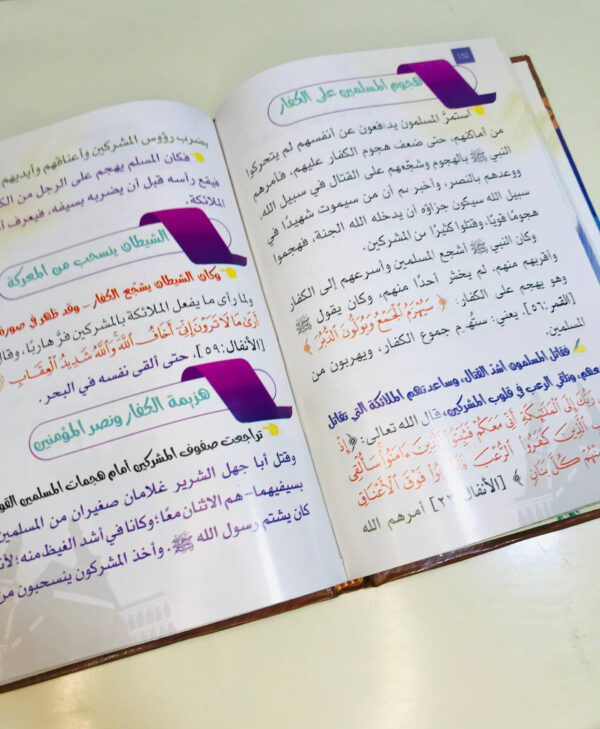 ١٥٢
هجوم المسلمين على الكفار
استمرَّ المسلمون يدافعون عن أنفسهم لم يتحركوا
من أماكنهم، حتى ضعف هجوم الكفار عليهم، فأمرهم
النبي ﷺ بالهجوم وشجَّعهم على القتال في سبيل الله،
ووعدهم بالنصر، وأخبر بم أن من سيموت شهيدًا في
سبيل الله سيكون جزاؤه أن يدخله الله الجنة، فهجموا
هجومًا قويًّا، وقتلوا كثيرًا من المشركين.
وكان النبي ﷺ أشجع المسلمين وأسرعهم إلى الكفار
وأقربهم منهم، لم يخش أحدًا منهم، وكان يقول ﷺ
وهو يهجم على الكفار: ﴿ سَيُهْزَمُ الْجَمْعُ وَيُوَلُّونَ الدُّبُرَ ﴾
[القمر:٤٥]، يعني: ستُهزم جموع الكفار، ويهربون من
المسلمين.
فقاتل المسلمون أشدَّ القتال، وساعدتهم الملائكة التي تقاتل
معهم، وتلقي الرعب في قلوب المشركين، قال الله تعالى: ﴿ إِذْ
رَبُّكَ إِلَى الْمَلَائِكَةِ أَنِّي مَعَكُمْ فَثَبِّتُوا الَّذِينَ ءَامَنُوا سَأُلْقِي
الَّذِينَ كَفَرُوا الرُّعْبَ فَاضْرِبُوا فَوْقَ الْأَعْنَاقِ
مِنْهُمْ كُلَّ بَنَانٍ ﴾ [الأنفال: ] أمرهم الله
بضرب رؤوس المشركين وأعناقهم وأيديهم
فكان المسلم يهجم على الرجل من
فيقع رأسه قبل أن يضربه بسيفه، فيعرف
الملائكة.
الشيطان ينسحب من المعركة
وكان الشيطان يشجّع الكفار – وقد ظهر في صورة
ولما رأى ما يفعل الملائكة بالمشركين فرَّ هاربًا، وقال
أَرَىٰ مَا لَا تَرَوْنَ إِنِّي أَخَافُ اللَّهَ وَاللَّهُ شَدِيدُ الْعِقَابِ ﴾
[الأنفال:٥٩]، حتى ألقى نفسه في البحر.
هزيمة الكفار ونصر المؤمنين
تراجعت صفوف المشركين أمام هجمات المسلمين
وقتل أبا جهل الشرير غلامان صغيران من المسلمين
بسيفيهما – هم الاثنان معًا؛ وكانا في أشد الغيظ منه؛
كان يشتم رسول الله ﷺ. وأخذ المشركون ينسحبون من